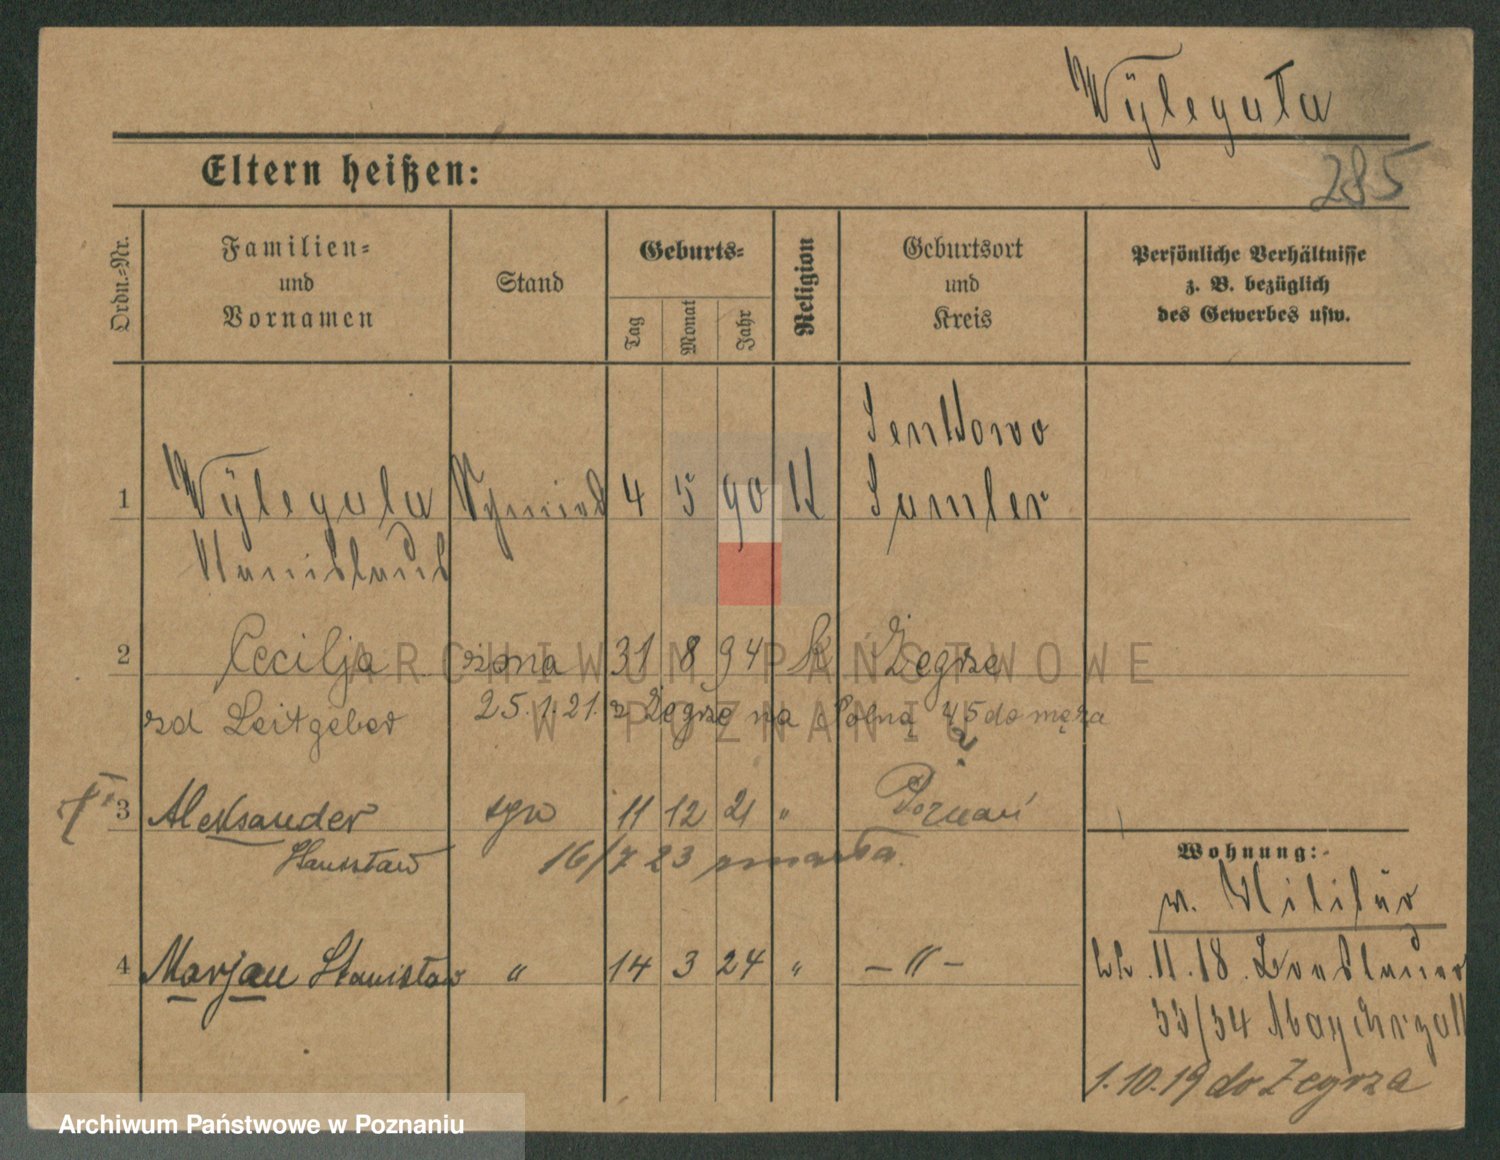 Wÿlegala
285
Eltern heißen:
Ordn.=Nr.
Familien=
und
Vornamen
Stand
Geburts=
Tag
Monat
Jahr
Religion
Geburtsort
und
Kreis
Persönliche Verhältnisse
z. B. bezüglich
des Gewerbes usw.
Sendowo
1 Wÿlegala 4 5 90 K Samter
Stanislaus
2 Cecilja żona 31 8 94 k Żegrze
zd Leitgeber 25.1.21. z Żegrze na Polną 45 do męża
3 Aleksander syn 11 12 21 " Poznań
Stanisław 16/7 23 zmarła.
4 Marjan Stanisław " 14 3 24 " – " –
Wohnung:
w. Militär
22.11.18. Breslauer
33/34
1.10.19 do Żegrza
ARCHIWUM PAŃSTWOWE
W POZNANIU
Archiwum Państwowe w Poznaniu